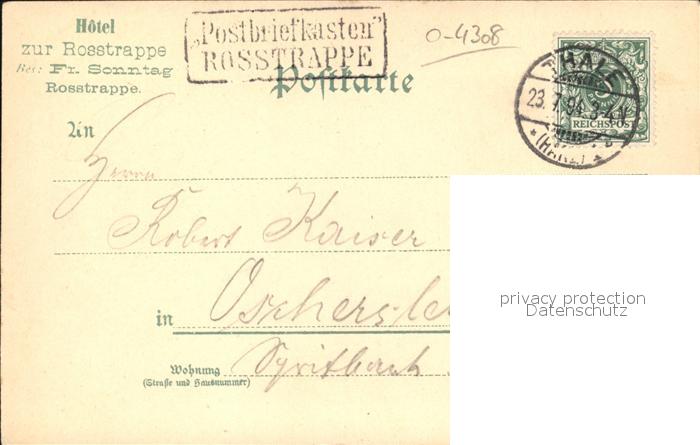 Hôtel
zur Rosstrappe
Bes: Fr. Sonntag
Rosstrappe.
„Postbriefkasten"
ROSSTRAPPE
0-4308
Postkarte
THALE
23. 7. 94. 3-4 N.
* (HARZ) *
REICHSPOST
An
Herrn
Robert Kaiser
in Oschersle
Wohnung
(Straße und Hausnummer)
privacy protection
Datenschutz